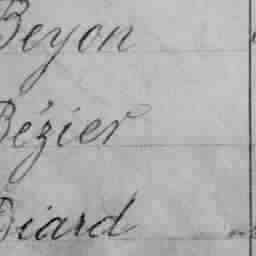 Beyon
Bézier
Biard